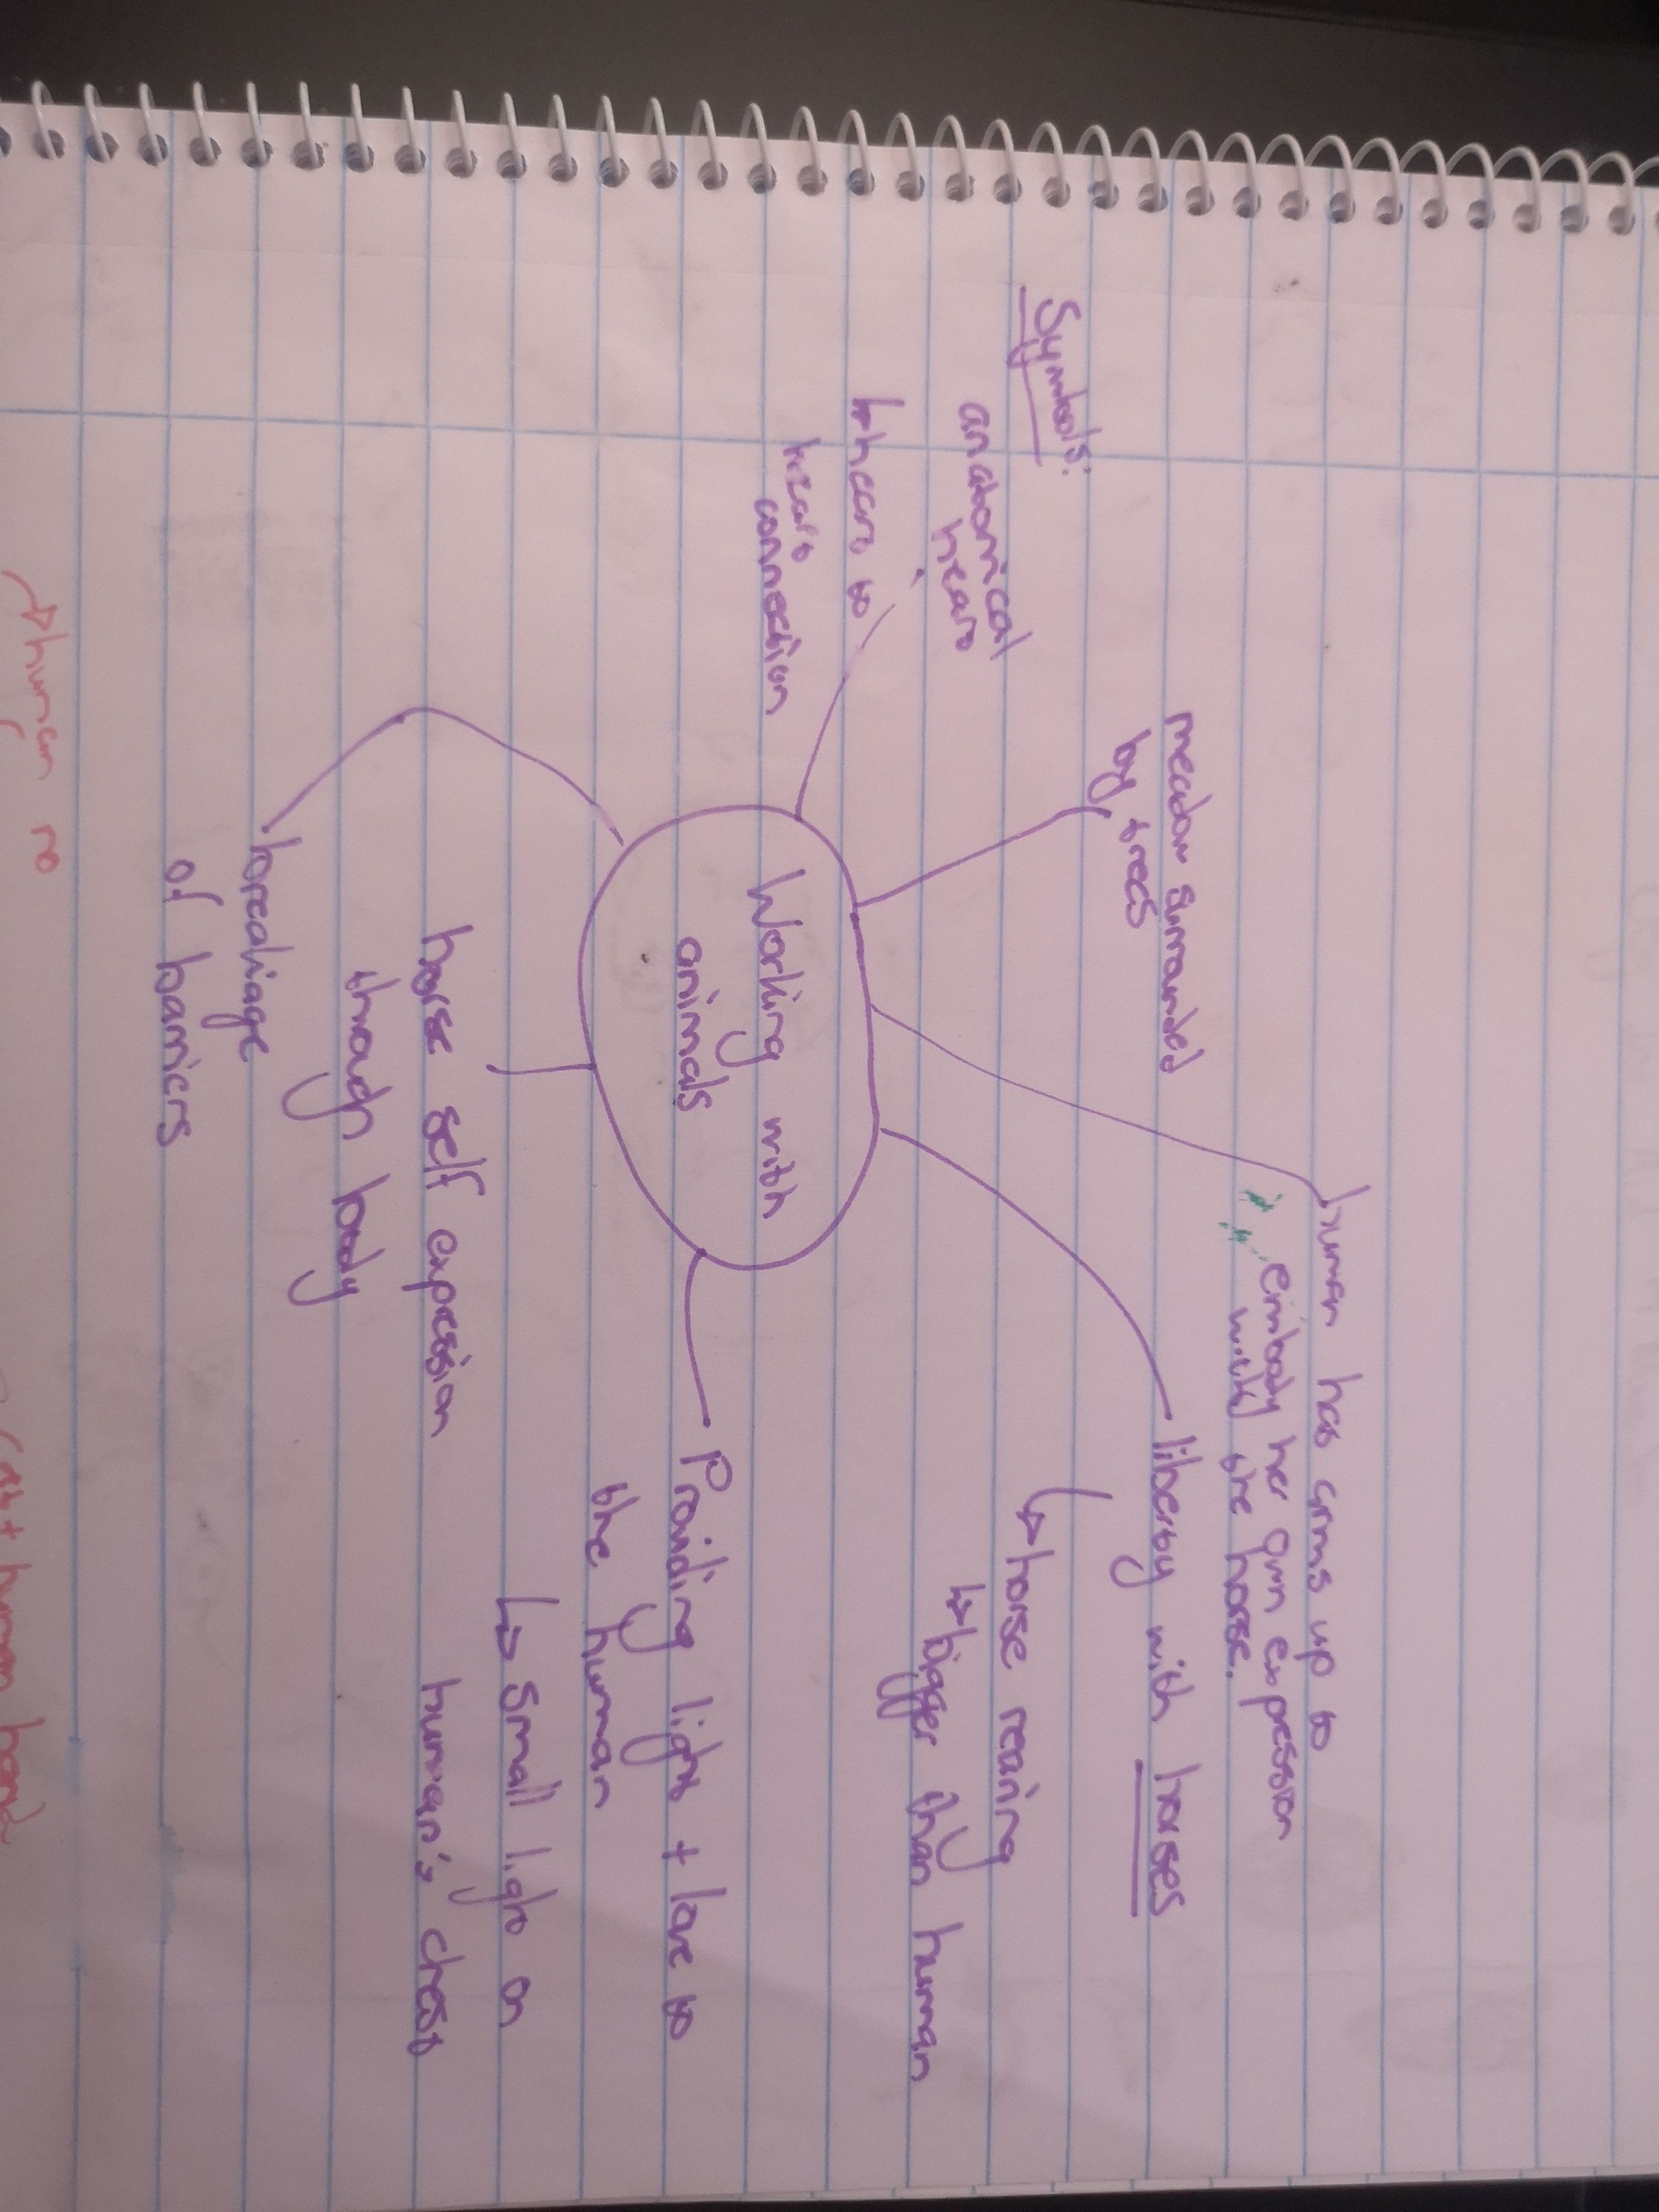 Symbols:
anatomical
heart
↳ heart to
heart
connection
meadow surrounded
by trees
human has arms up to
embody her own expression
with the horse.
liberty with horses
↳ horse rearing
↳ bigger than human
Working with
animals
Providing light + love to
the human
↳ small light on
human's chest
horse self expression
through body
breakage
of barriers
→ human no
+ human